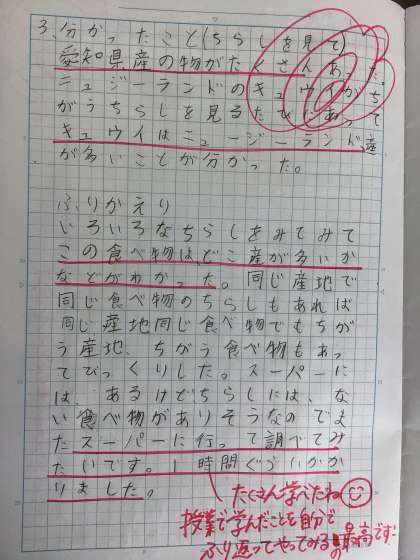 3.分かったこと(ちらしを見て)
愛知県産の物がたくさんあった。
ニュージーランドのキュウイがち
がうちらしを見るたびにあって
キュウイはニュージーランド産
が多いことが分かった。
ふりかえり
いろいろなちらしをみてみて
この食べ物はどこ産が多いか
などがわかった。同じ産地で
同じ食べ物のちらしもあれば
同じ産地同じ食べ物でもちが
う産地、ちがう食べ物もあっ
てびっくりした。スーパーに
は、あるけどちらしには、な
い食べ物がありそうなのでま
たスーパーに行って調べてみ
たいです。1時間ぐらいかか
りました。
たくさん学べたね
授業で学んだことを自分で
ふり返ってやってみるの最高です!